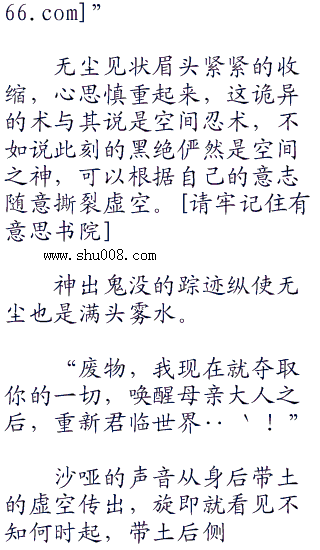 66.com]”
无尘见状眉头紧紧的收
缩，心思慎重起来，这诡异
的术与其说是空间忍术，不
如说此刻的黑绝俨然是空间
之神，可以根据自己的意志
随意撕裂虚空。[请牢记住有
意思书院]
www.shu008.com
神出鬼没的踪迹纵使无
尘也是满头雾水。
“废物，我现在就夺取
你的一切，唤醒母亲大人之
后，重新君临世界‥｀！”
沙哑的声音从身后带土
的虚空传出，旋即就看见不
知何时起，带土后侧